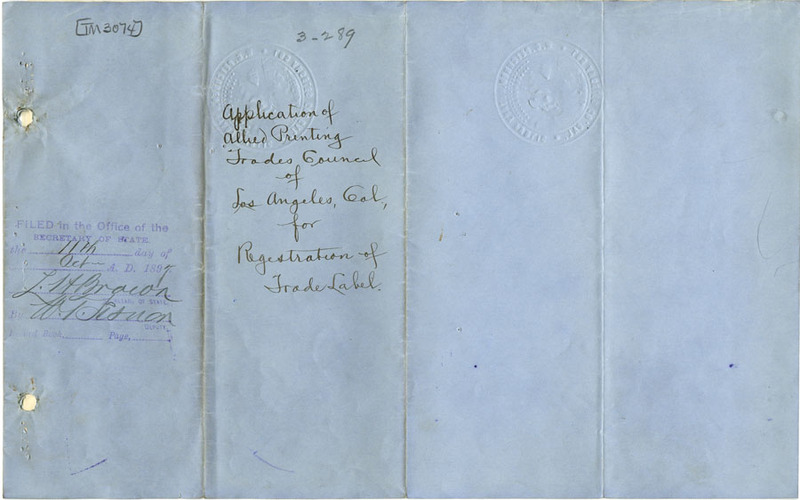 [TM3074]
3-289
Application of
Allied Printing
Trades Council
of
Los Angeles, Cal,
for
Registration of
Trade Label.
FILED in the Office of the
SECRETARY OF STATE
the 11th day of
Oct A. D. 189
L. H. Brown
SECRETARY OF STATE
By W. T. Sesnon
DEPUTY
Book Page,